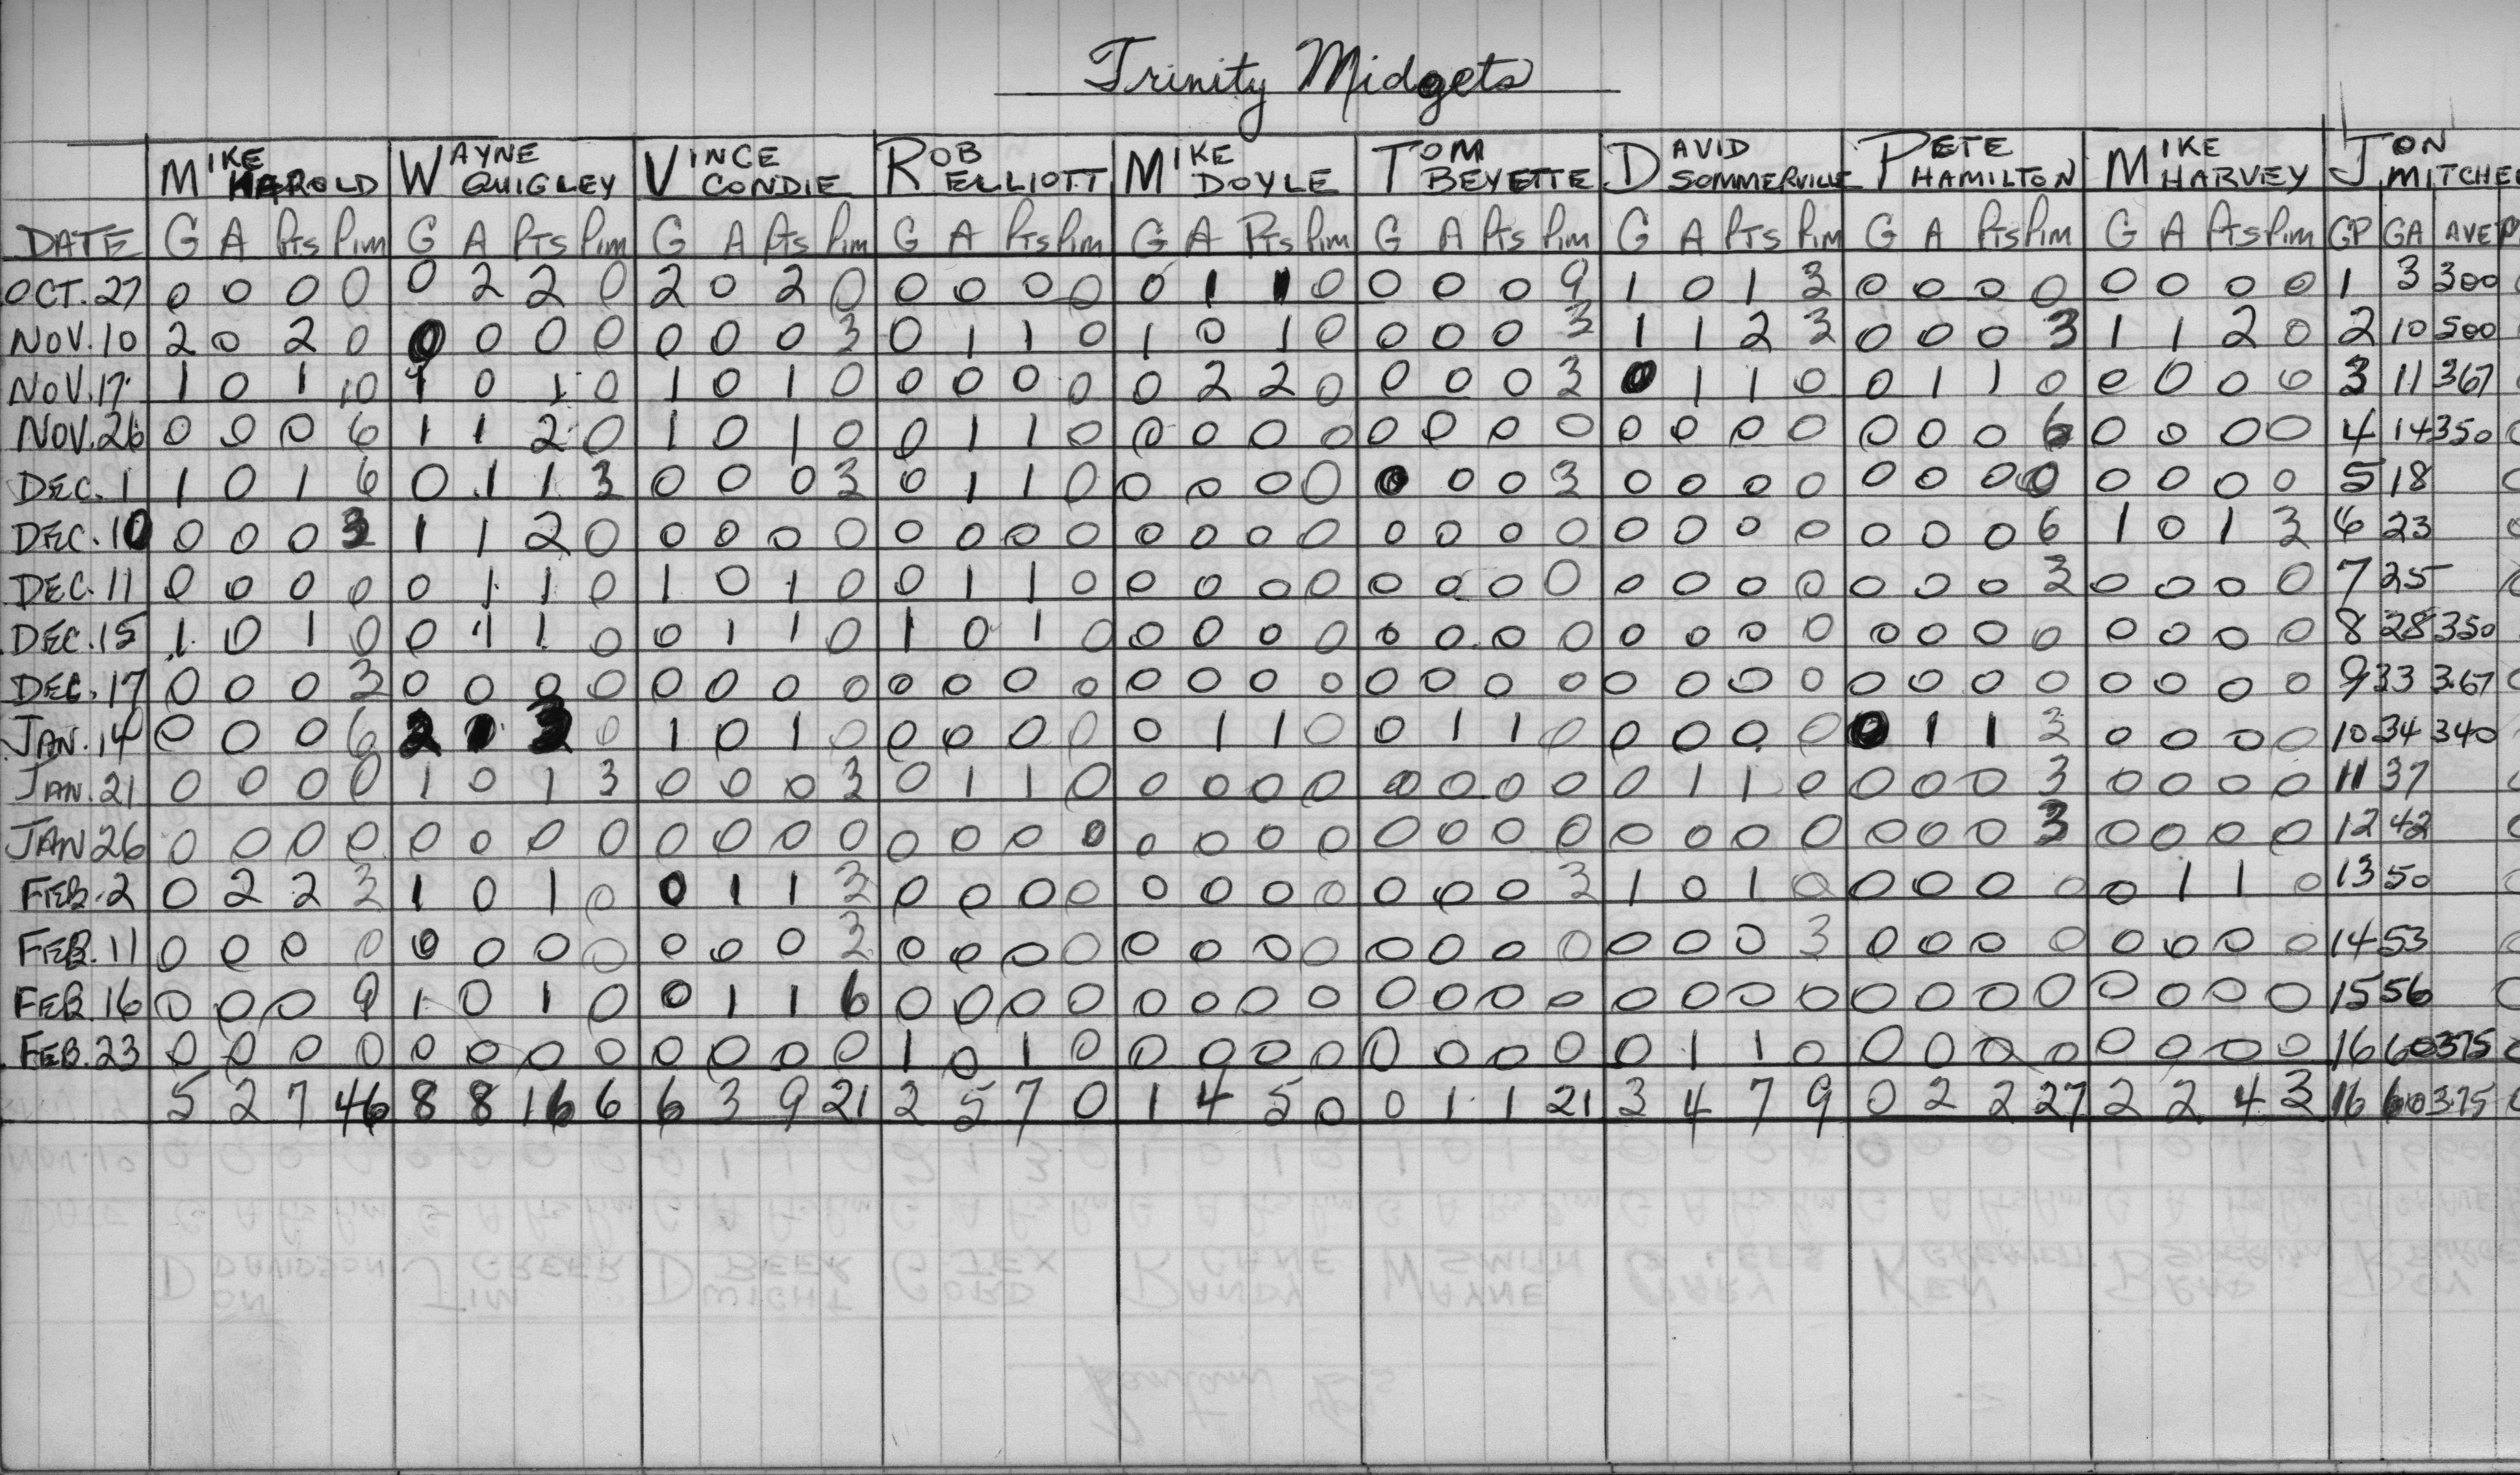 Trinity Midgets
MIKE HAROLD WAYNE QUIGLEY VINCE CONDIE ROB ELLIOTT MIKE DOYLE TOM BEYETTE DAVID SOMMERVILLE PETE HAMILTON MIKE HARVEY JON MITCHE
DATE G A Pts Pim G A Pts Pim G A Pts Pim G A Pts Pim G A Pts Pim G A Pts Pim G A Pts Pim G A Pts Pim G A Pts Pim GP GA AVE
OCT. 27 0 0 0 0 0 2 2 0 2 0 2 0 0 0 0 0 0 1 1 0 0 0 0 9 1 0 1 3 0 0 0 0 0 0 0 0 1 3 300
NOV. 10 2 0 2 0 0 0 0 0 0 0 0 3 0 1 1 0 1 0 1 0 0 0 0 3 1 1 2 3 0 0 0 3 1 1 2 0 2 10 500
NOV. 17 1 0 1 10 1 0 1 0 1 0 1 0 0 0 0 0 0 2 2 0 0 0 0 3 0 1 1 0 0 1 1 0 0 0 0 0 3 11 367
NOV. 26 0 0 0 6 1 1 2 0 1 0 1 0 0 1 1 0 0 0 0 0 0 0 0 0 0 0 0 0 0 0 0 6 0 0 0 0 4 14 350
DEC. 1 1 0 1 6 0 1 1 3 0 0 0 3 0 1 1 0 0 0 0 0 0 0 0 3 0 0 0 0 0 0 0 0 0 0 0 0 5 18
DEC. 10 0 0 0 3 1 1 2 0 0 0 0 0 0 0 0 0 0 0 0 0 0 0 0 0 0 0 0 0 0 0 0 6 1 0 1 3 6 23
DEC. 11 0 0 0 0 0 1 1 0 1 0 1 0 0 1 1 0 0 0 0 0 0 0 0 0 0 0 0 0 0 0 0 3 0 0 0 0 7 25
DEC. 15 1 0 1 0 0 1 1 0 0 1 1 0 1 0 1 0 0 0 0 0 0 0 0 0 0 0 0 0 0 0 0 0 0 0 0 0 8 28 350
DEC. 17 0 0 0 3 0 0 0 0 0 0 0 0 0 0 0 0 0 0 0 0 0 0 0 0 0 0 0 0 0 0 0 0 0 0 0 0 9 33 3.67
JAN. 14 0 0 0 6 2 1 3 0 1 0 1 0 0 0 0 0 0 1 1 0 0 1 1 0 0 0 0 0 0 1 1 3 0 0 0 0 10 34 340
JAN. 21 0 0 0 0 1 0 1 3 0 0 0 3 0 1 1 0 0 0 0 0 0 0 0 0 0 1 1 0 0 0 0 3 0 0 0 0 11 37
JAN 26 0 0 0 0 0 0 0 0 0 0 0 0 0 0 0 0 0 0 0 0 0 0 0 0 0 0 0 0 0 0 0 3 0 0 0 0 12 42
FEB. 2 0 2 2 3 1 0 1 0 0 1 1 3 0 0 0 0 0 0 0 0 0 0 0 3 1 0 1 0 0 0 0 0 0 1 1 0 13 50
FEB. 11 0 0 0 0 0 0 0 0 0 0 0 3 0 0 0 0 0 0 0 0 0 0 0 0 0 0 0 3 0 0 0 0 0 0 0 0 14 53
FEB. 16 0 0 0 9 1 0 1 0 0 1 1 6 0 0 0 0 0 0 0 0 0 0 0 0 0 0 0 0 0 0 0 0 0 0 0 0 15 56
FEB. 23 0 0 0 0 0 0 0 0 0 0 0 0 1 0 1 0 0 0 0 0 0 0 0 0 0 1 1 0 0 0 0 0 0 0 0 0 16 60 375
5 2 7 46 8 8 16 6 6 3 9 21 2 5 7 0 1 4 5 0 0 1 1 21 3 4 7 9 0 2 2 27 2 2 4 3 16 60 3.75